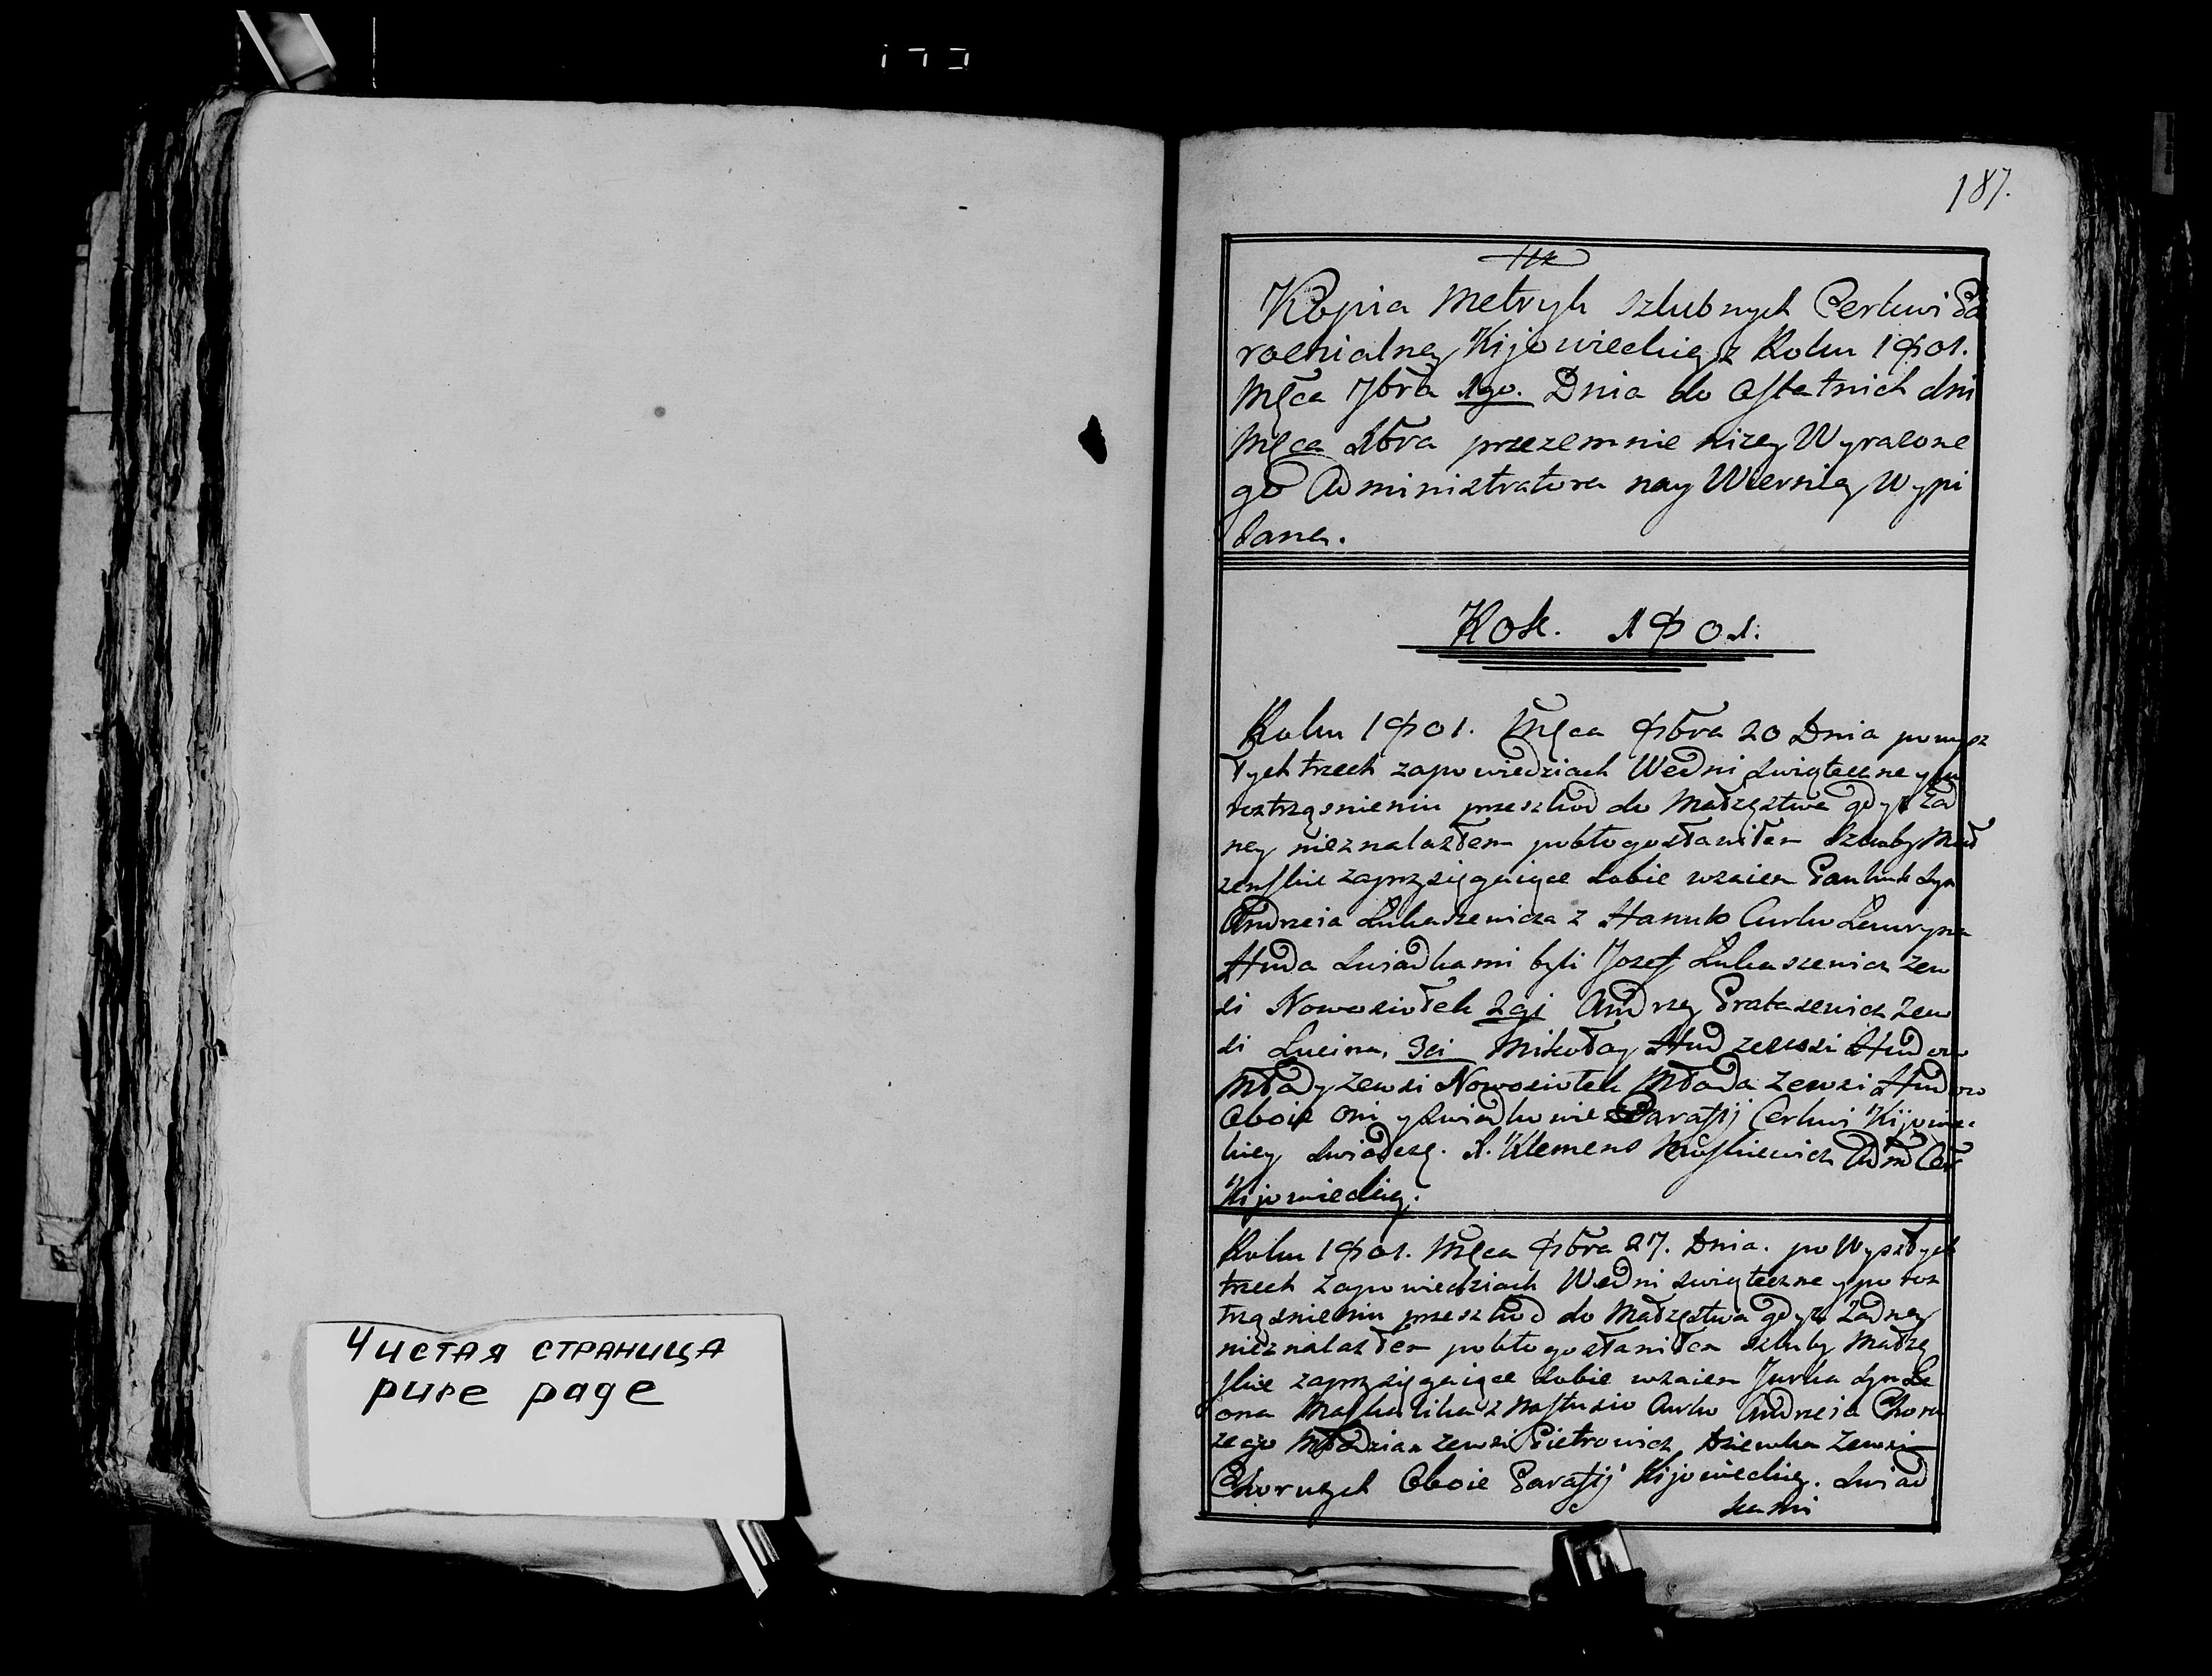 187.
Kopia Metryk szlubnych Cerkwi Pa
rochialney Kijowieckiey z Roku 1801.
Mĉa 7bra 1go. Dnia do Ostatnich dni
Mĉa Xbra przezemnie niżey Wyrażone
go Administratora nay Wierniey Wypi
sana.
Rok. 1801.
Roku 1801. Mĉa 8bra 20 Dnia po wysz
łych trzech zapowiedziach We dni świąteczne y po
roztrząśnieniu przeszkod do Małżęstwa gdy ża
ney nieznalazłem pobłogosławiłem szluby Mał
zeńskie zaprzysięgaiące sobie wzaiem Pauluk Syn
Andrzeia Łukaszewicza z Hanulo Curko Ławryna
Huda Swiadkami byli Jozef Łukaszewicz ze w
si Nowosiołek 2gi Andrzey Prataszewicz ze w
si Łucina, 3ci Mikołay Hud ze wsi Hudow
Młody ze wsi Nowosiołek Młoda ze wsi Hudow
Oboie oni y swiadkowie Parafij Cerkwi Kijowiec
kiey swiadczę. X. Klemens Adm Cer
Kijowieckiey.
Roku 1801. Mĉa 8bra 27. Dnia. po Wyszłych
trzech Zapowiedziach We dni świąteczne y po roz
trząśnieniu przeszkod do Małżęstwa gdyż żadney
nieznalazłem pobłogosławiłem szluby Małżę
skie zaprzysięgaiące sobie wzaiem Jurka Syn Le
ona z Nastusio Curko Andrzeia Choru
żego Młodzian ze wsi Pietrowicz, Dziewka ze wsi
Chorużych Oboie Parafij Kijowieckiey. Swiad
kami
Чистая страница
pure page